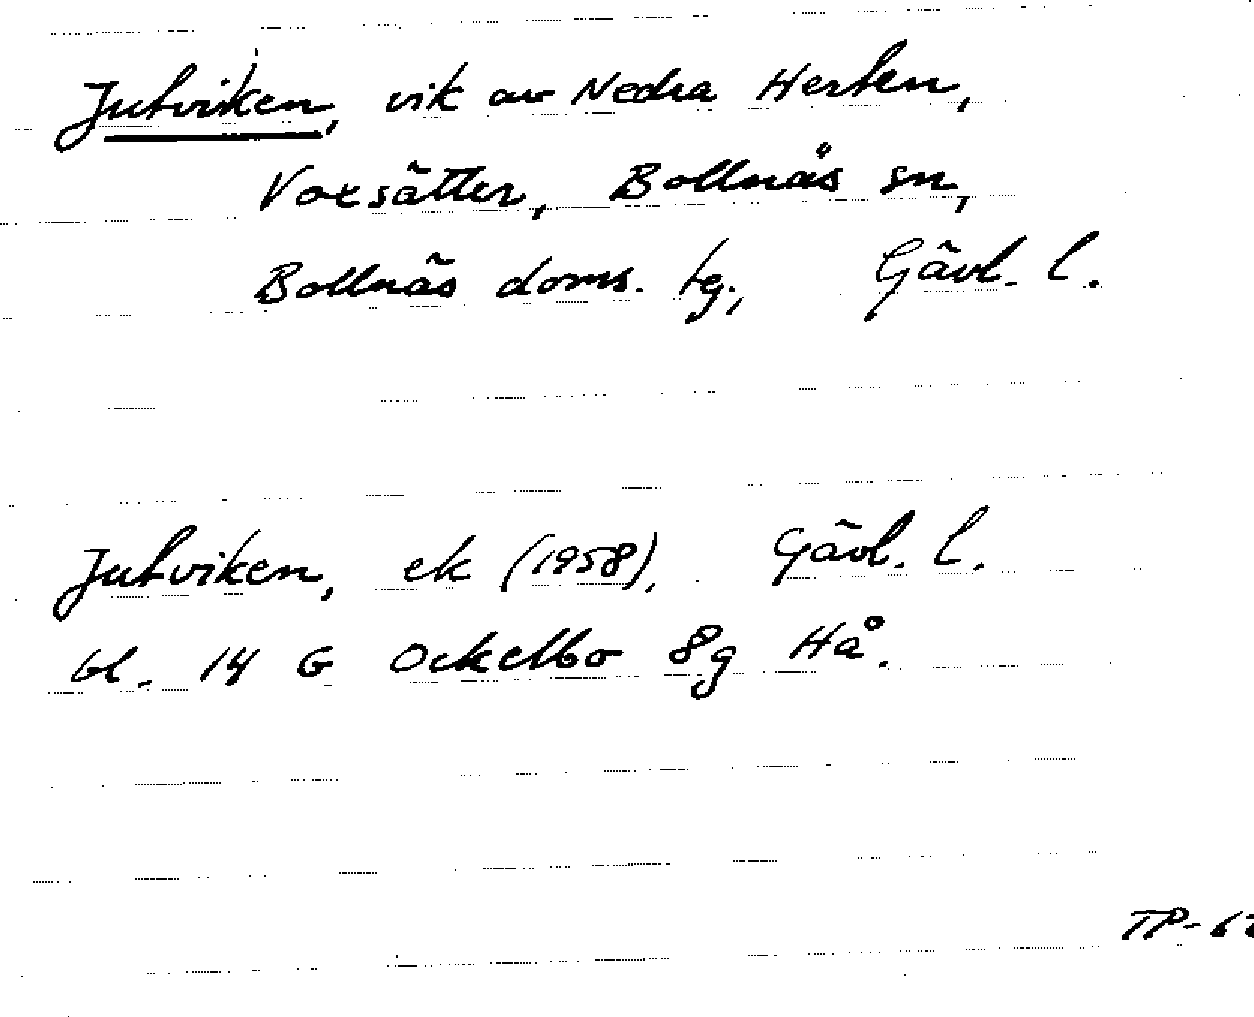 Jutviken, vik av Nedra Herten,
Voxsätter, Bollnäs sn,
Bollnäs doms. tg., Gävl. l.
Jutviken, ek (1958). Gävl. l.
bl. 14 G Ockelbo 8g Hå.
TP-